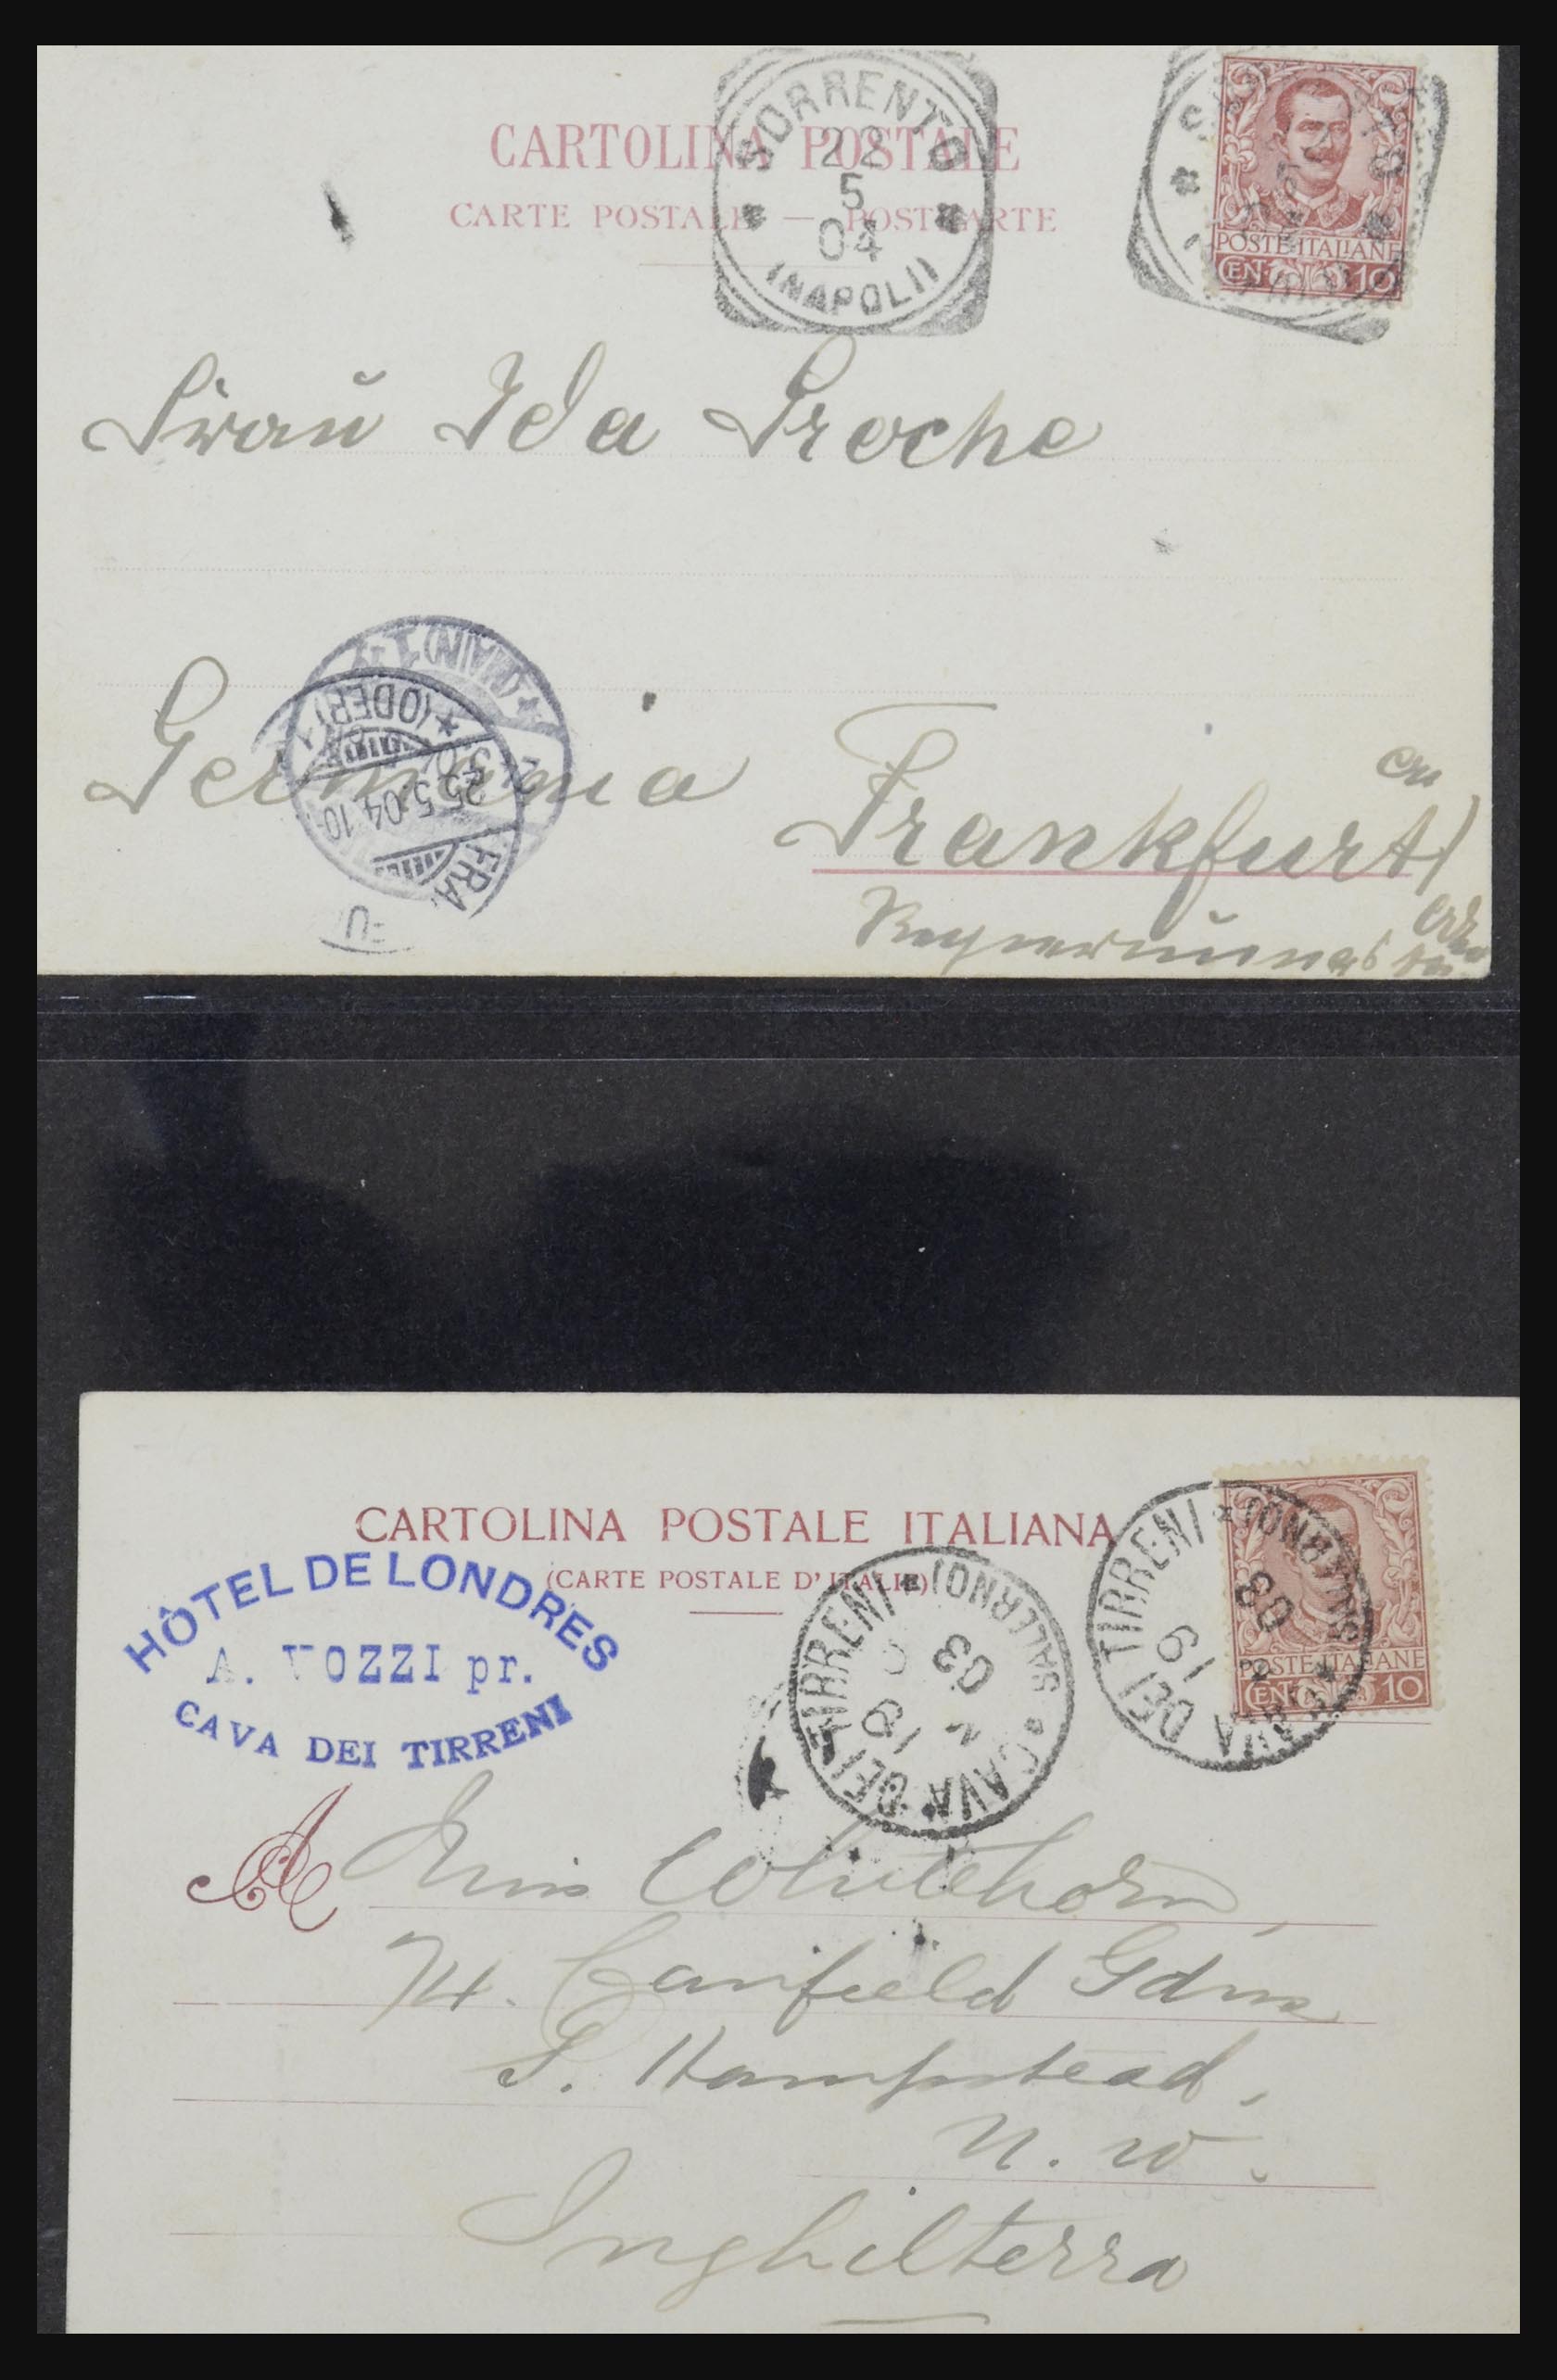 CARTOLINA POSTALE
CARTE POSTALE — POSTKARTE
SORRENTO
22
5
04
(NAPOLI)
POSTE ITALIANE
CEN 10
Frau Ida Proche
(MAIN) 1
(ODER) 1
25.5.04.10
FRA
Germania Frankfurt
CARTOLINA POSTALE ITALIANA
(CARTE POSTALE D'ITALIE)
HÔTEL DE LONDRES
A. VOZZI pr.
CAVA DEI TIRRENI
CAVA DEI TIRRENI * (SALERNO) *
18
03
CAVA DEI TIRRENI * (SALERNO) *
19
03
POSTE ITALIANE
CEN 10
A Miss Whitehorn,
74. Canfield Gdns
S. Hampstead,
N. W.
Inghilterra